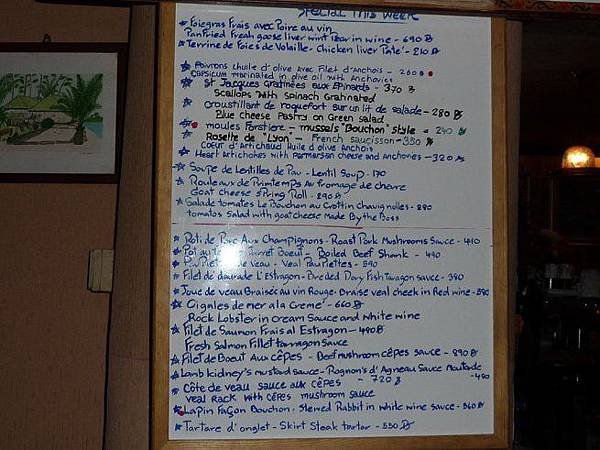 Special This Week
Foiegras Frais avec Poire au vin
Pan Fried Fresh goose liver wint Pear in wine - 690 B
Terrine de Foies de Volaille - Chicken liver Pate' - 210 B
Poivrons L'huile d'olive avec Filet d'Anchois - 260 B
Capsicum Marinated in olive oil with Anchovies
St Jacques Gratinées aux Epinards - 370 B
Scallops with Spinach Gratinated
Croustillant de roquefort sur un lit de salade - 280 B
Blue cheese Pastry on Green salad
moules Forstiere - mussels "Bouchon" Style - 240 B
Rosette de "Lyon" - French saucisson - 350 B
Coeur d'Artichaud Huile d'olive Anchois
Heart Artichokes with Parmersan cheese and Anchovies - 320 B
Soupe de Lentilles de Puy - Lentil Soup - 170
Rouleaux de Printemps Au fromage de chevre
Goat cheese SPring Roll - 290 B
Salade tomates Le Bouchon au Crottin Chavignolles - 290
tomatos Salad with goat cheese Made By the Boss
Roti de Porc Aux Champignons - Roast Pork Mushrooms Sauce - 410
Pot au Jarret Boeuf - Boiled Beef Shank - 440
de Veau - Veal PauPiettes - 390
Filet de daurade L'Estragon - Breded Dory Fish Taragon sauce - 390
Joue de veau Braisée au vin Rouge - Braise veal cheek in Red wine - 390
Cigales de mer a la Creme' - 660 B
Rock Lobster in cream Sauce and white wine
Filet de Saumon Frais al Estragon - 480 B
Fresh Salmon Fillet tarragon Sauce
Filet de Boeuf Aux cêpes - Beef mushroom cêpes sauce - 890 B
Lamb kidney's mustard sauce - Rognon's d'Agneau Sauce Moutarde - 480
Côte de veau sauce aux cêpes - 720 B
veal rack with cêpes mushroom sauce
Lapin Façon Bouchon - Stewed Rabbit in white wine sauce - 560 B
Tartare d'onglet - Skirt Steak tartar - 550 B